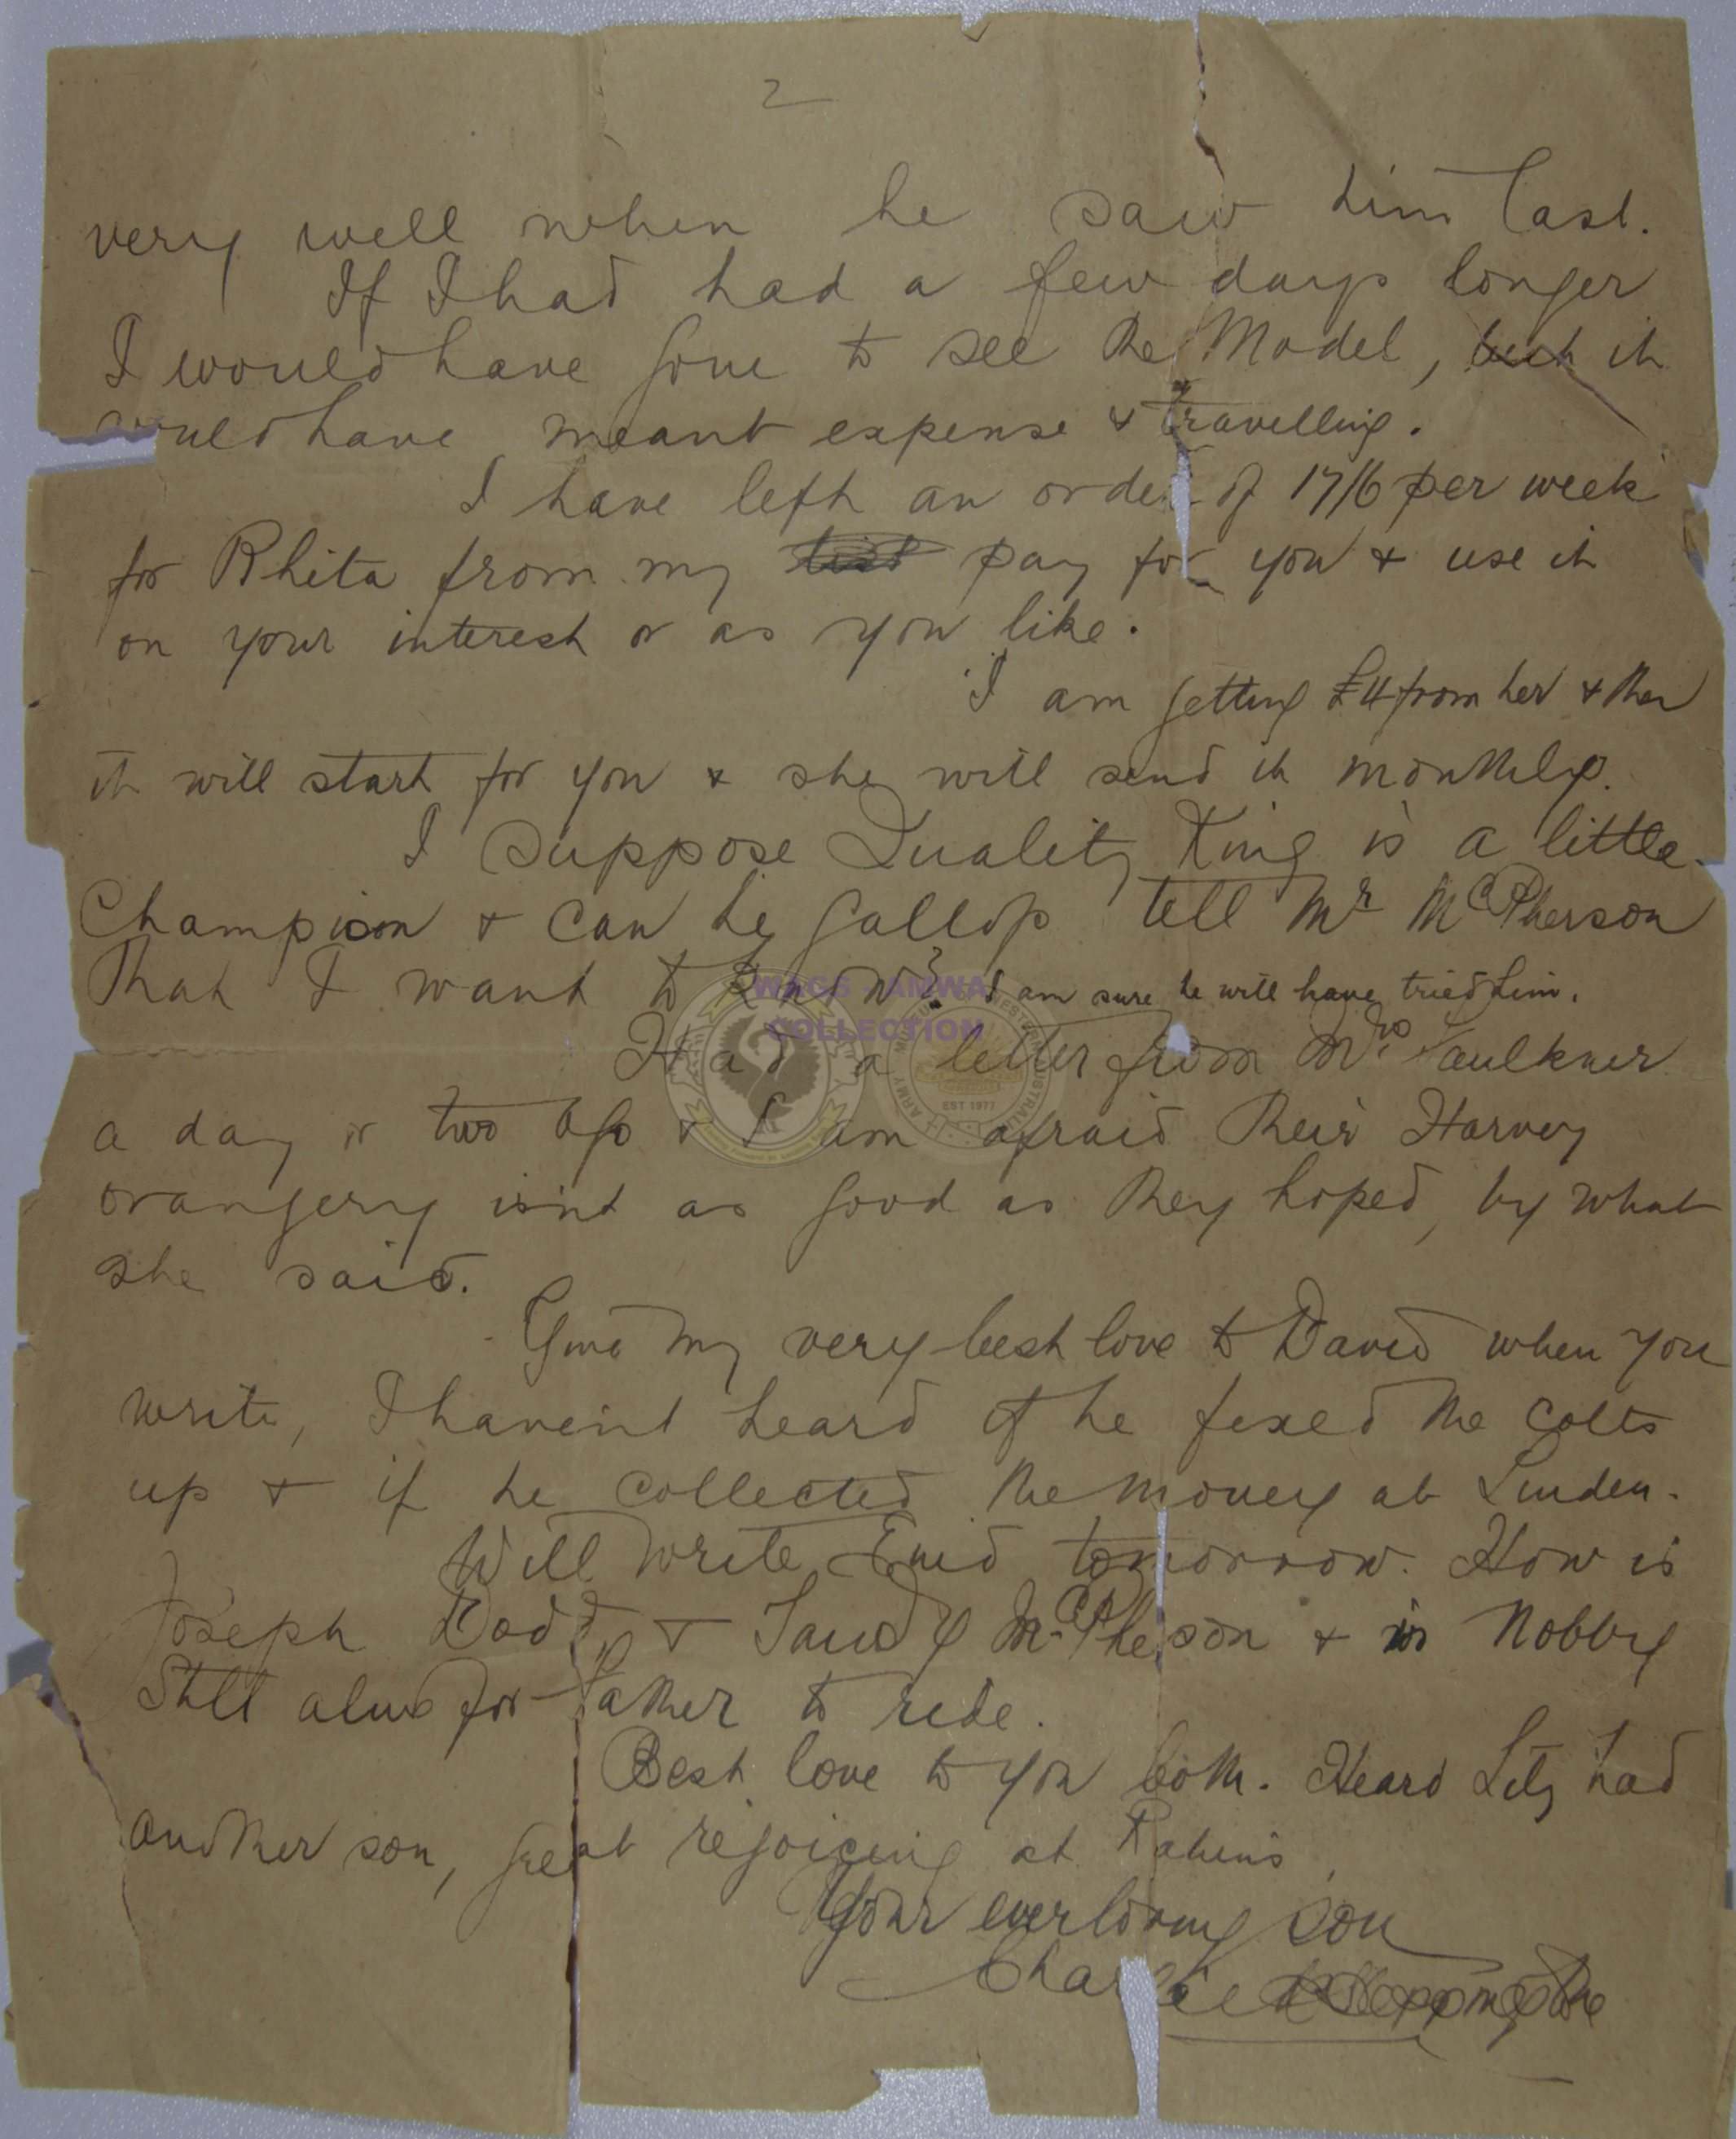 2
very well when he saw him last.
If I had had a few days longer
I would have gone to see the Model, but it
would have meant expense & travelling.
I have left an order of 17/6 per week
for Rhita from my pay for you & use it
on your interest or as you like.
I am getting £4 from her & then
it will start for you & she will send it monthly.
I suppose Quality King is a little
Champion & can he gallop tell Mr McPherson
that I want to know? I am sure he will have tried him.
Had a letter from Mrs Faulkner
a day or two ago & I am afraid their Harvey
orangery isint as good as they hoped, by what
she said.
Give my very best love to David when you
write, I havent heard if he fixed the colts
up & if he collected the money at Linden.
Will write Enid tomorrow. How is
Joseph Dodd & Sandy McPherson & is Nobby
Still alive for Father to ride.
Best love to you both. Heard Lily had
another son, great rejoicing at
Your ever loving son
Charlie
WAGS - AMWA
COLLECTION
EST 1977